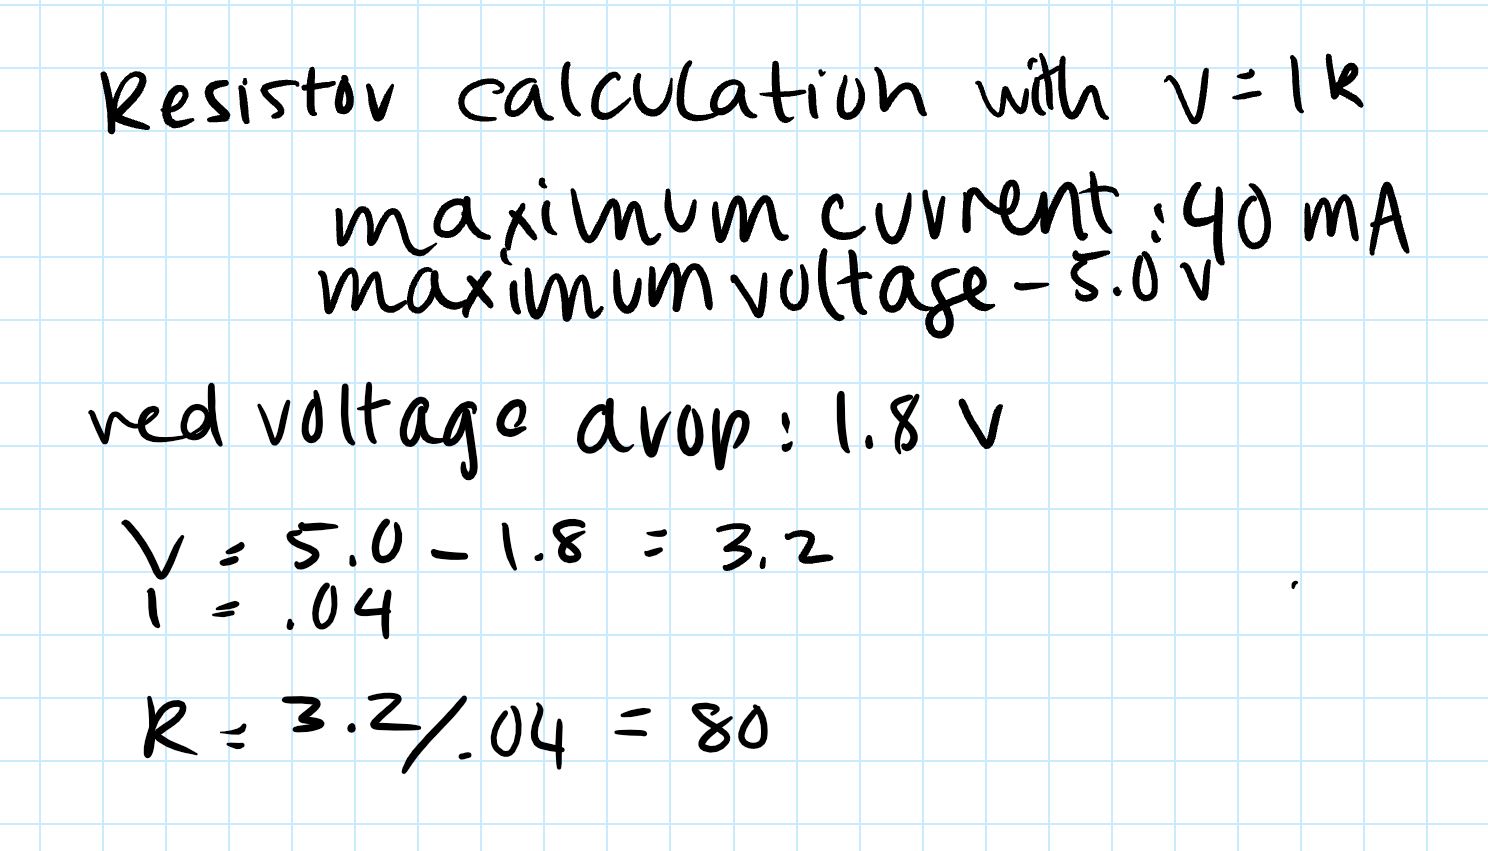 Resistor calculation with V=IR
maximum current: 40 mA
maximum voltage - 5.0 V
red voltage drop: 1.8 V
V = 5.0 - 1.8 = 3.2
I = .04
R = 3.2/.04 = 80